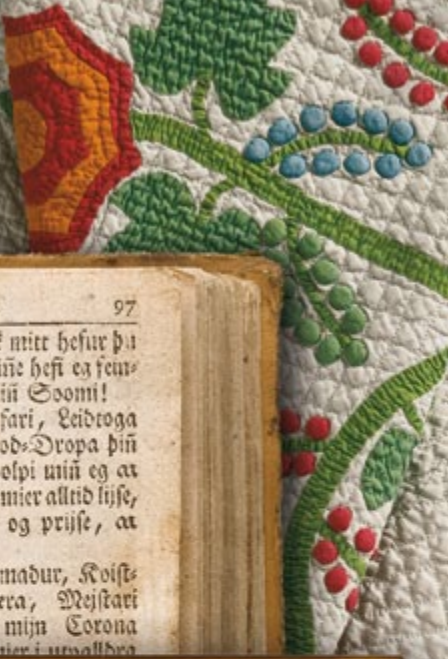 97
mitt hefur þu
iñe hefi eg fem⸗
iñ Soomi!
fari, Leidtoga
od⸗Dropa þiñ
olpi miñ eg at
mier alltid lijfe,
og prijſe, at
madur, Kvist⸗
era, Mejſtari
mijn Corona
mier i utvalldra